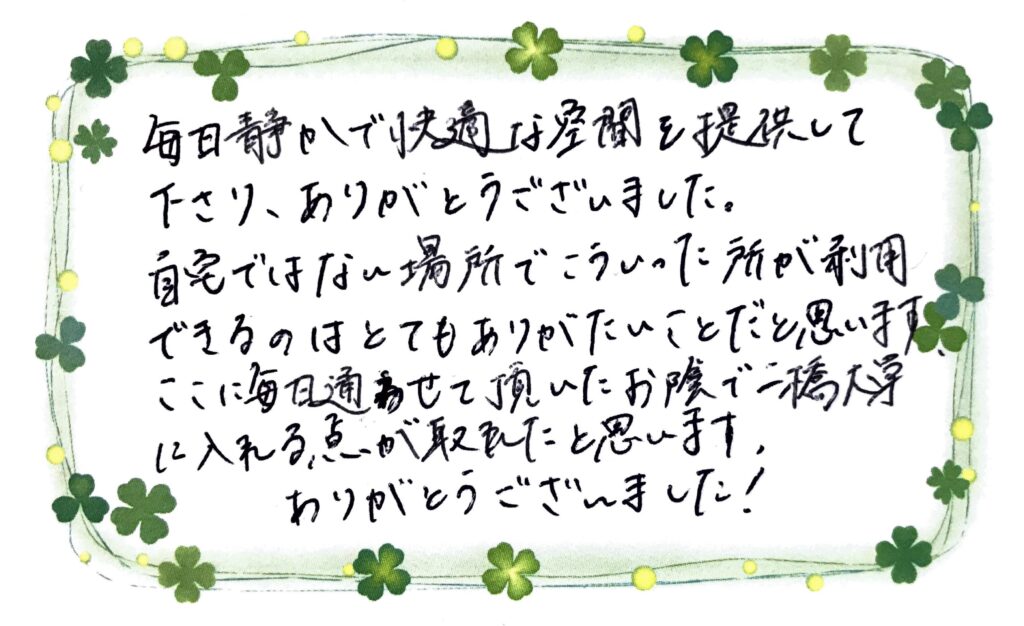 毎日静かで快適な空間を提供して
下さり、ありがとうございました。
自宅ではない場所でこういった所が利用
できるのはとてもありがたいことだと思います。
ここに毎日通わせて頂いたお陰で一橋大学
に入れる点が取れたと思います。
ありがとうございました!